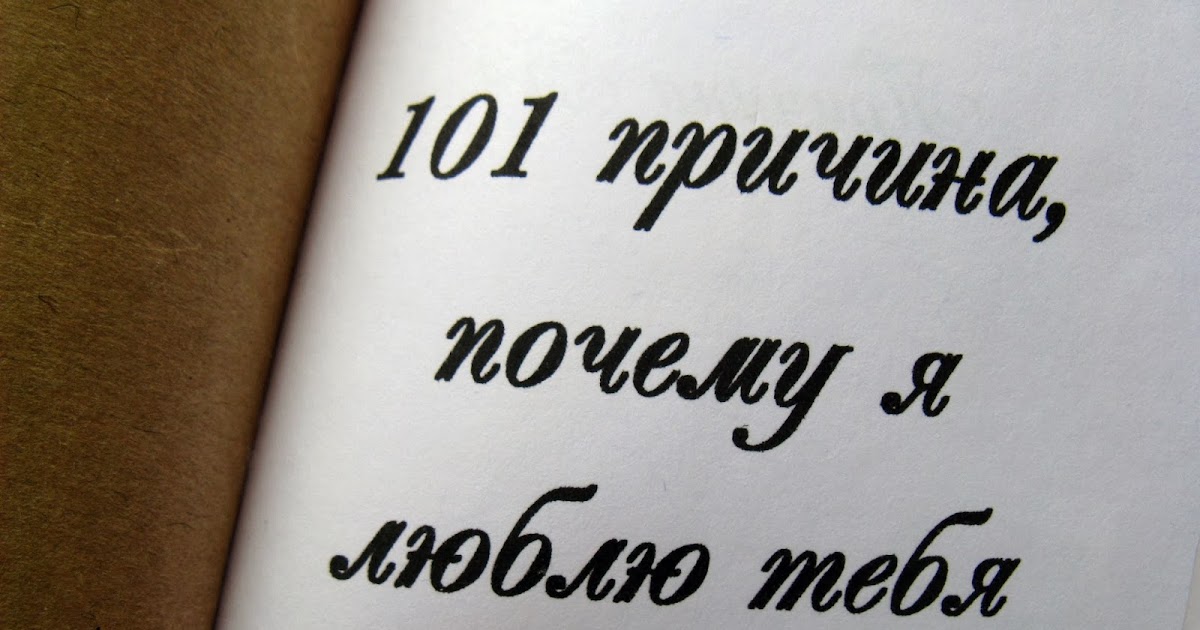 101 причина,
почему я
люблю тебя